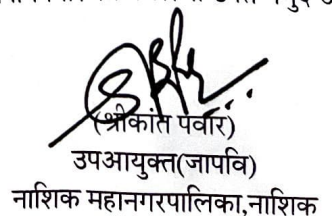 (श्रीकांत पवार)
उपआयुक्त(जापवि)
नाशिक महानगरपालिका,नाशिक